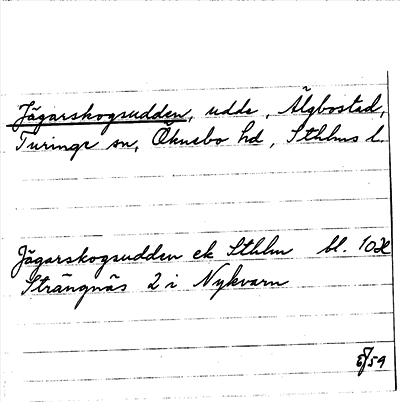 Jägarskogsudden, udde, Älgbostad,
Turinge sn, Öknebo hd, Sthlms l.
Jägarskogsudden ek Sthlm bl. 102
Strängnäs 2 i Nykvarn
/59